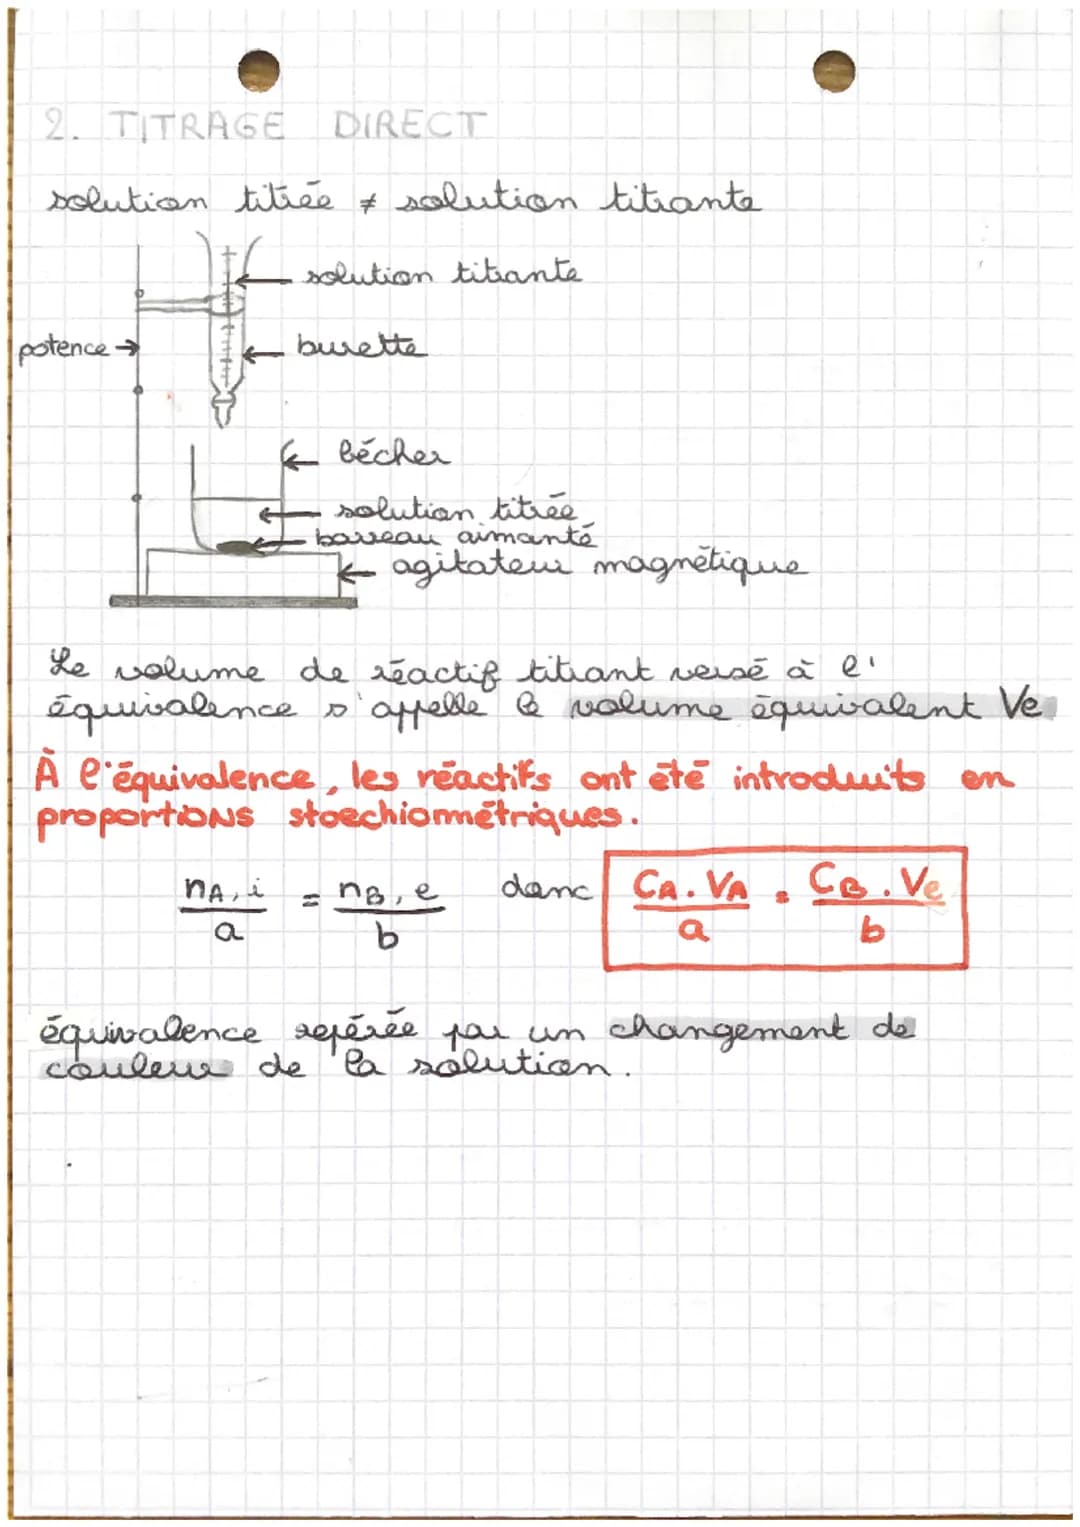 2. TITRAGE DIRECT
solution titrée ≠ solution titrante
solution titrante
potence →
burette
bécher
solution titrée
barreau aimanté
agitateur magnétique
Le volume de réactif titrant versé à l'
équivalence s'appelle le volume équivalent Ve
À l'équivalence, les réactifs ont été introduits en
proportions stoechiométriques.
nA,i / a = nB,e / b donc CA.VA / a = CB.Ve / b
équivalence repérée par un changement de
couleur de la solution.